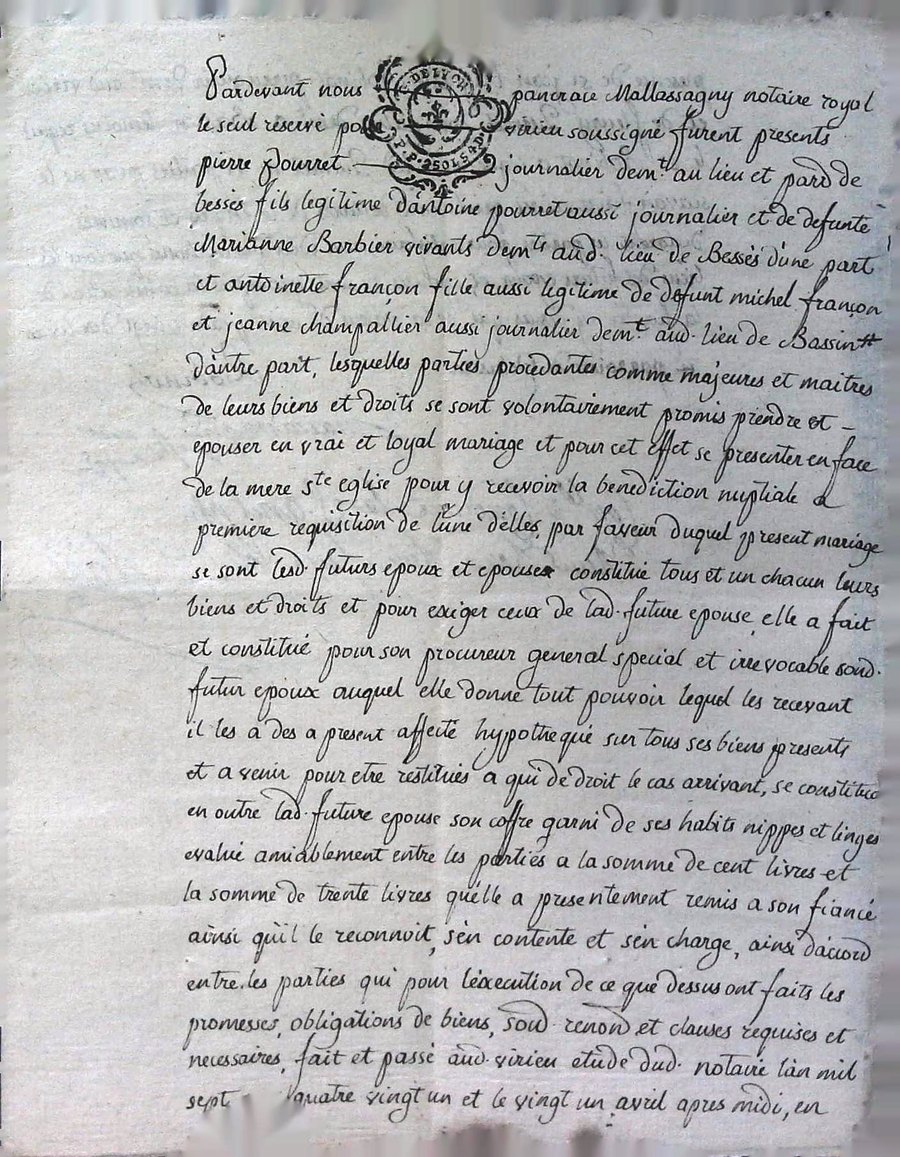 Pardevant nous pancrace Mallassagny notaire royal
DE LYON
P.P. 2SOLS 4D.
le seul réservé po virieu soussigné furent presents
pierre pourret journalier demt. au lieu et pard de
besses fils legitime d'antoine pourret aussi journalier et de defunte
Marianne Barbier vivants demts aud. lieu de Bessés d'une part
et antoinette françon fille aussi legitime de defunt michel françon
et jeanne champallier aussi journalier demt. aud. lieu de
d'autre part, lesquelles parties procedantes comme majeures et maitres
de leurs biens et droits se sont volontairement promis prendre et –
epouser en vrai et loyal mariage et pour cet effet se presenter en face
de la mere ste eglise pour y recevoir la benediction nuptiale a
premiere requisition de l'une d'elles, par faveur duquel present mariage
se sont lesd. futurs epoux et epouse constitué tous et un chacun leurs
biens et droits et pour exiger ceux de lad. future epouse elle a fait
et constitué pour son procureur general special et irrevocable sond.
futur epoux auquel elle donne tout pouvoir lequel les recevant
il les a des a present affecté hypothequé sur tous ses biens presents
et a venir pour etre restitués a qui de droit le cas arrivant, se constitue
en outre lad. future epouse son coffre garni de ses habits nippes et linges
evalué amiablement entre les parties a la somme de cent livres et
la somme de trente livres qu'elle a presentement remis a son fiancé
ainsi qu'il le reconnoit, s'en contente et s'en charge, ainsi d'acord
entre les parties qui pour l'éxecution de ce que dessus ont faits les
promesses, obligations de biens, soud. renond et clauses requises et
necessaires, fait et passé aud. virieu etude dud. notaire l'an mil
sept quatre vingt un et le vingt un avril apres midi, en